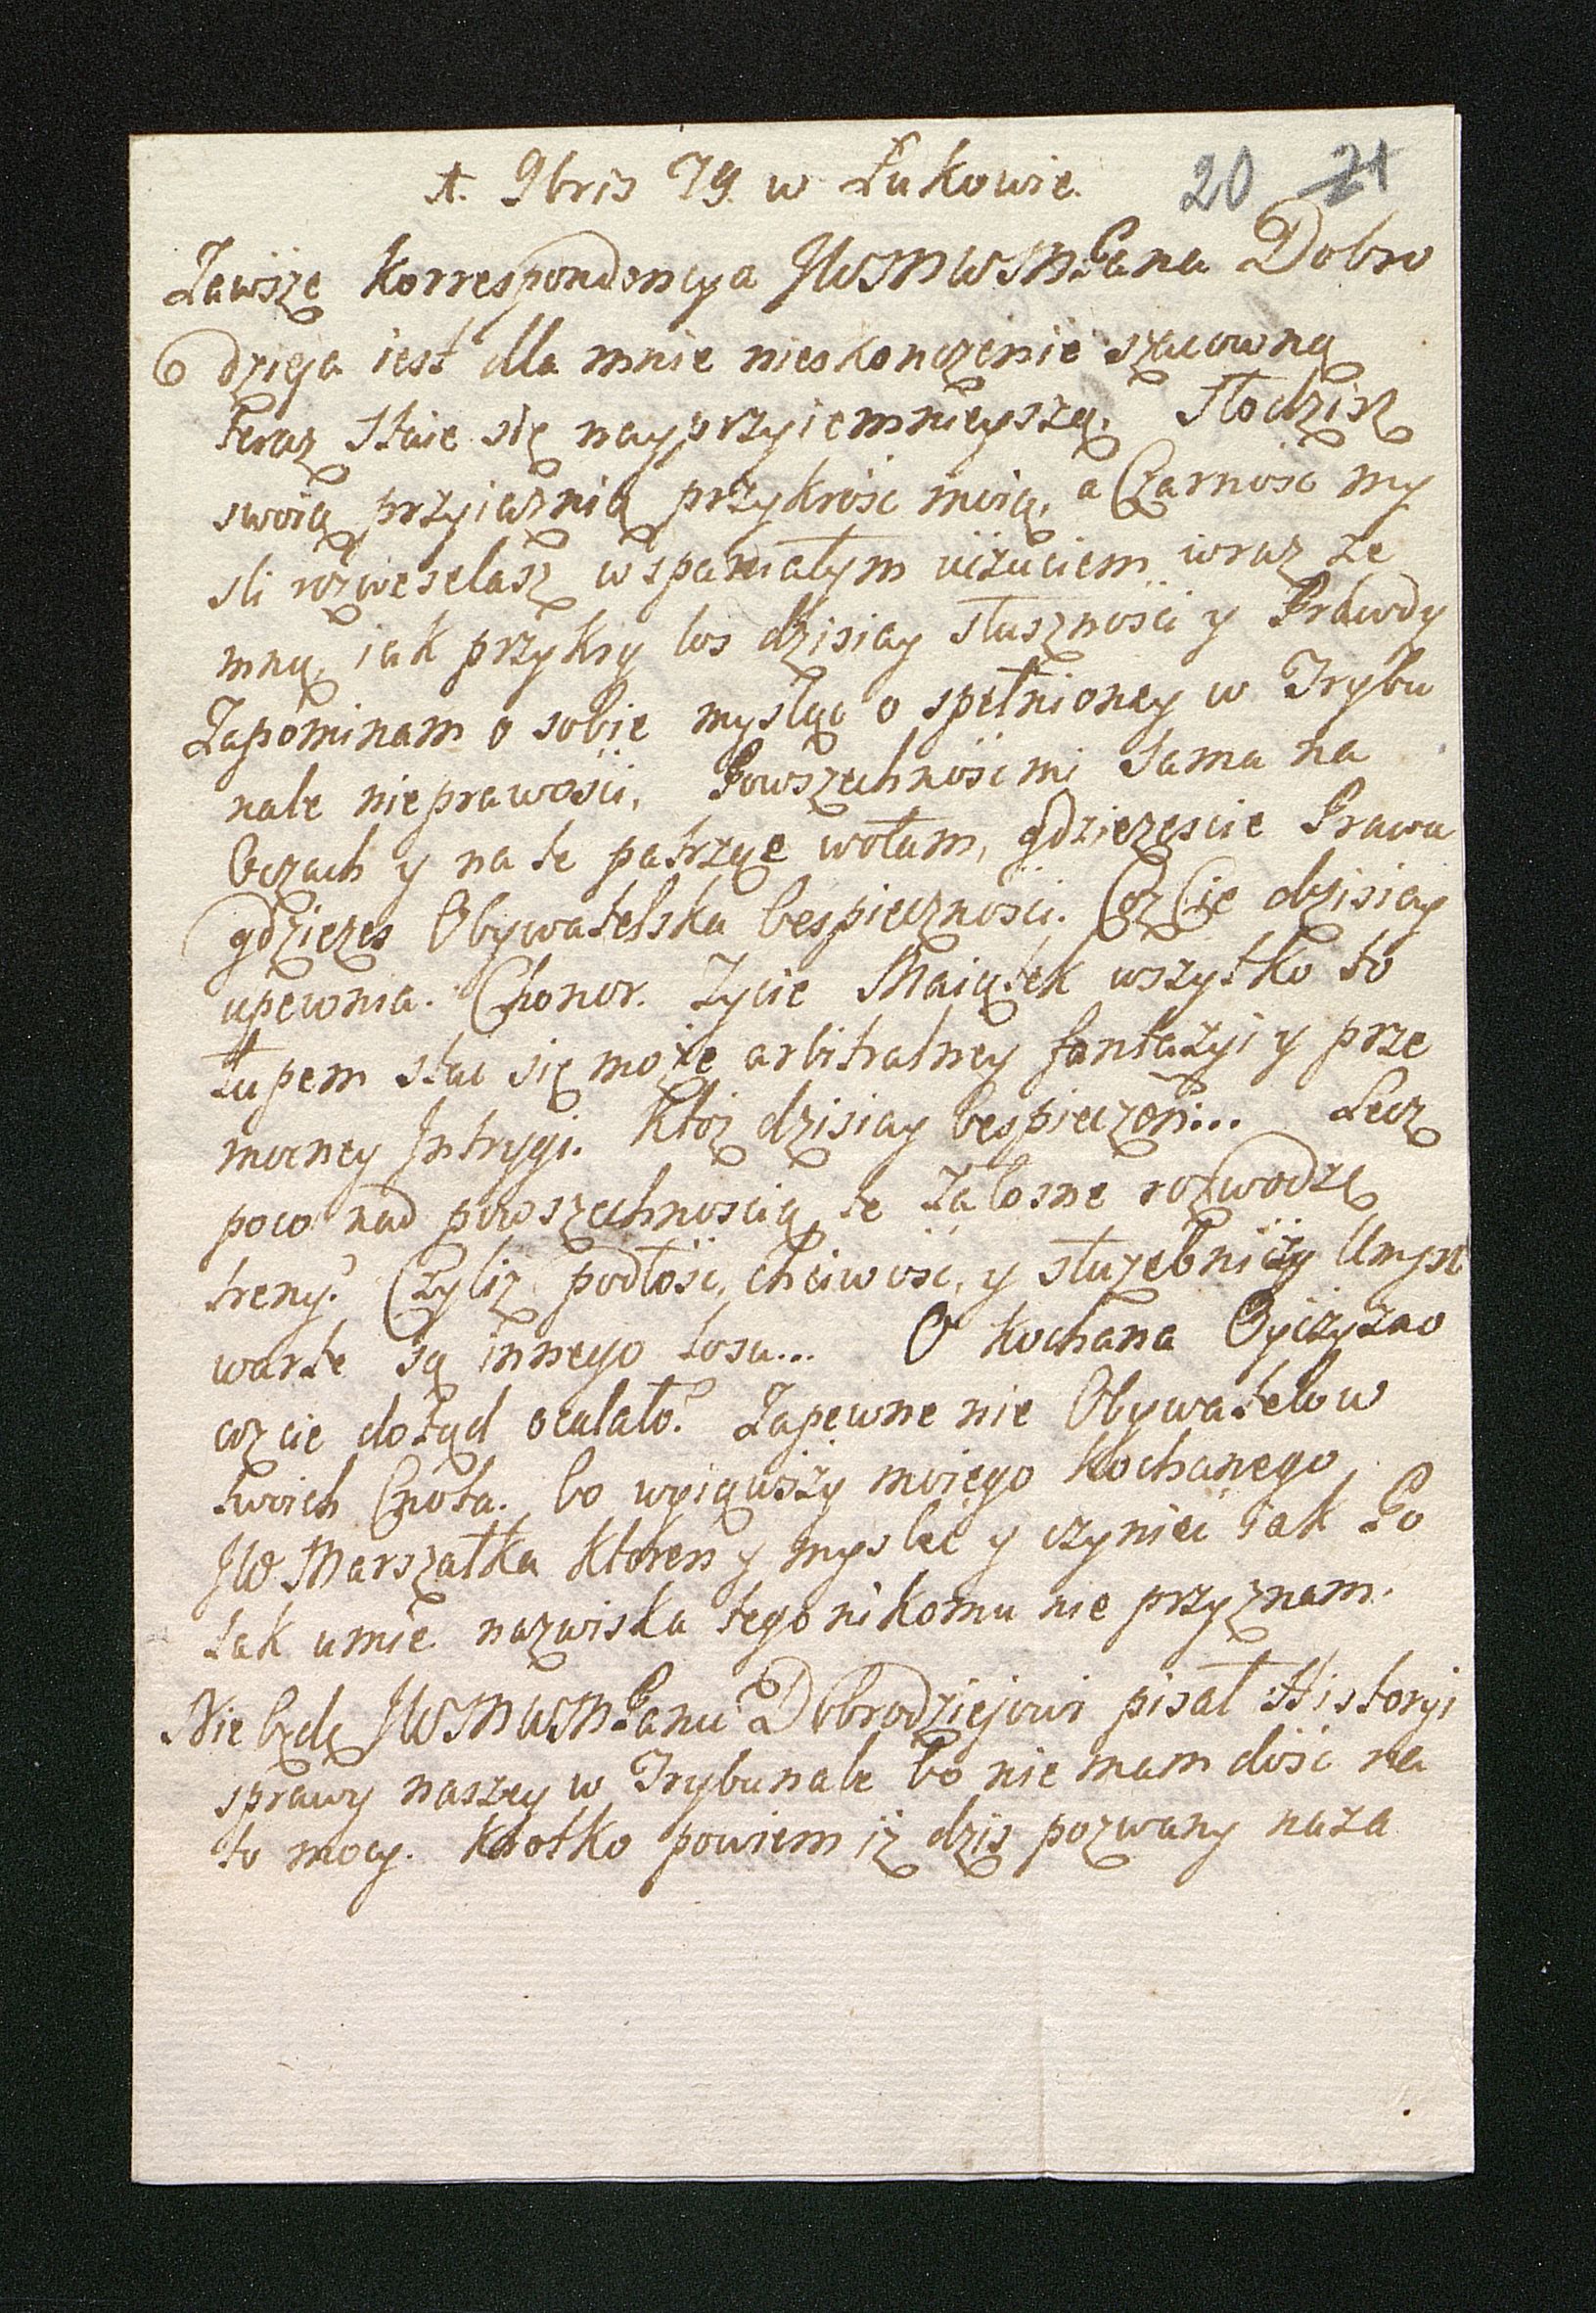 9bris 79 w Łukowie. 20 21
Zawsze Korrespondencya JWMWMPana Dobro
dzieja iest dla mnie nieskonczenie szacowną
teraz staie się nayprzyiemnieyszą. Słodzisz
swoią przyiaznią przykrość moią, a Czarność my
sli rozweselasz wspaniałym uczuciem wraz ze
mną, iak przykry los dzisiay słuszności y Prawdy
Zapominam o sobie mysląc o spełnioney w Trybu
nale nieprawości. Powszechność mi sama na
Oczach y na te patrząc wołam, gdzieżeście Prawa
gdzieżeś Obywatelska bespieczności. Coż Cię dzisiay
upewnia. Chonor. Zycie Maiątek wszytko to
łupem stać się może arbitralney fantazyi y prze
mocney Intrygi. Któż dzisiay bespieczen... Lecz
poco nad powszechnością te żałosne rozwodzę
treny? Czyliż podłość, chciwość, y służebniczy Umysł
warte są innego losu... O kochana Oyczyzno
coż cie dotąd ocalało? Zapewne nie Obywatelow
twoich Cnota. bo wyiąwszy moiego Kochanego
JW Marszałka ktoren y myslić y czynić iak Po
lak umie nazwiska tego nikomu nie przyznam.
Nie będę JWMWMPanu Dobrodziejowi pisał Historyi
sprawy naszey w Trybunale bo nie mam dość na
to mocy. Krotko powiem iż dziś pozwany naza